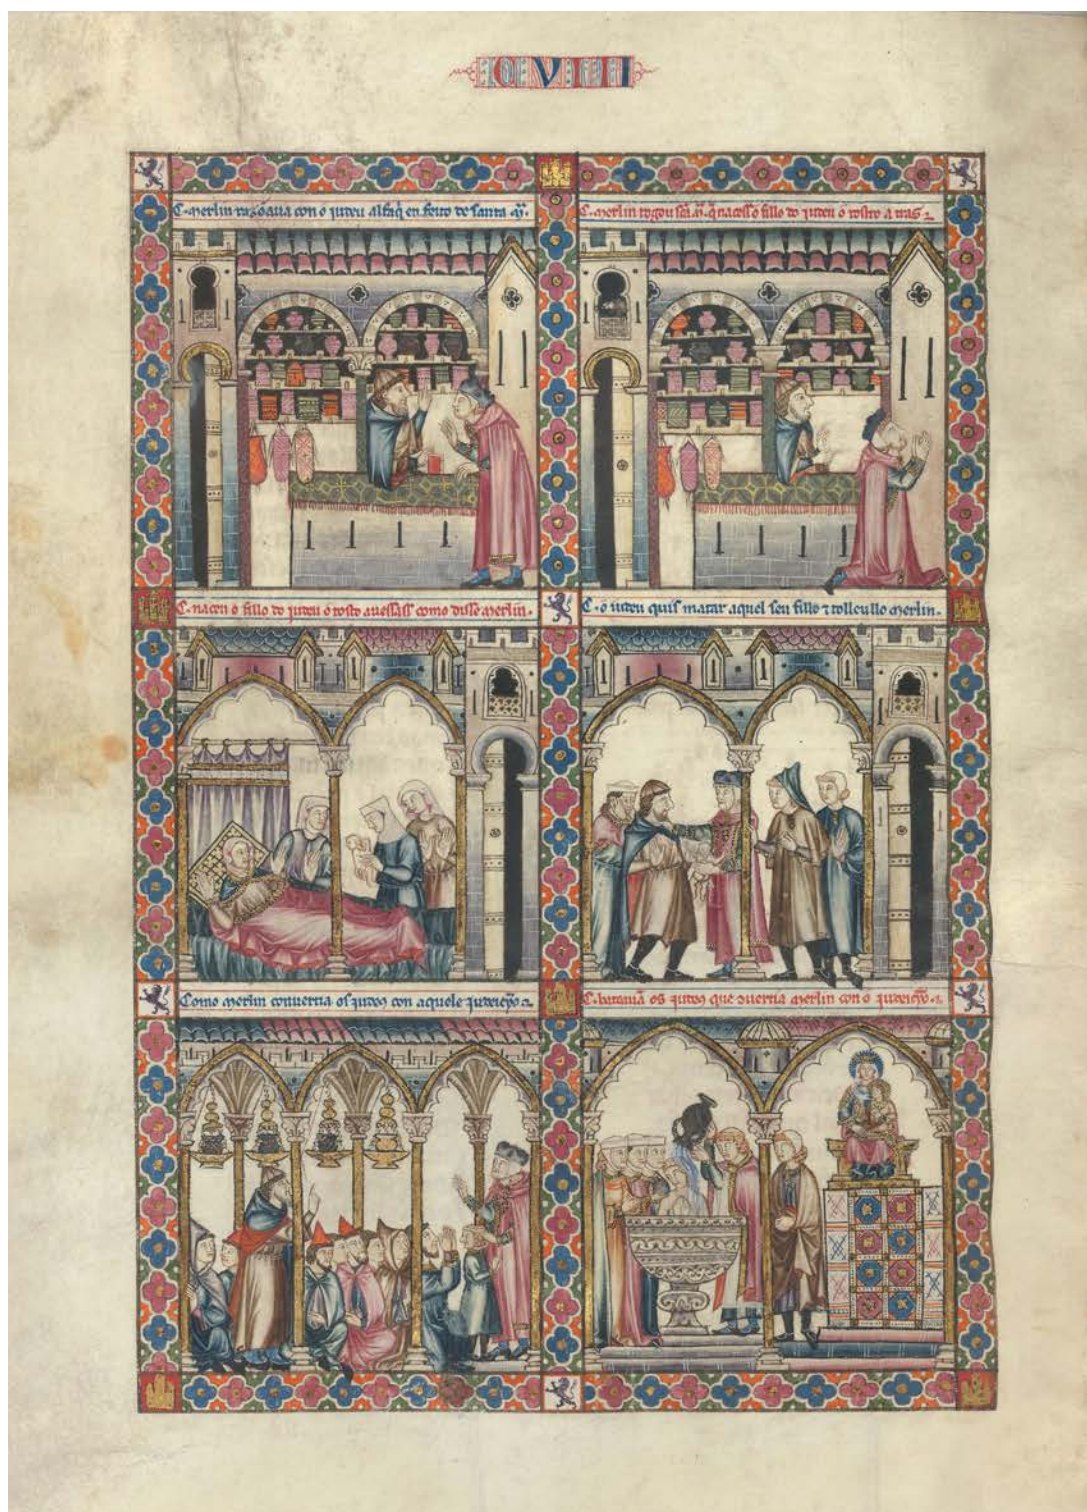 CVIII
C. merlin razoaua con o iudeu alfaq̇ en feito de santa ṁ.
C. merlin rogou sc̃a ṁ. q̃ naceſſ o fillo do iudeu o roſtro a tras
C. naceu o fillo do iudeu o roſto aueſſaſſ como diſſe merlin.
C. o iudeu quis matar aquel seu fillo ⁊ tolleullo merlin.
Como merlin conuertia os iudeus con aquele
C. batauã os iudeus que merlin con o